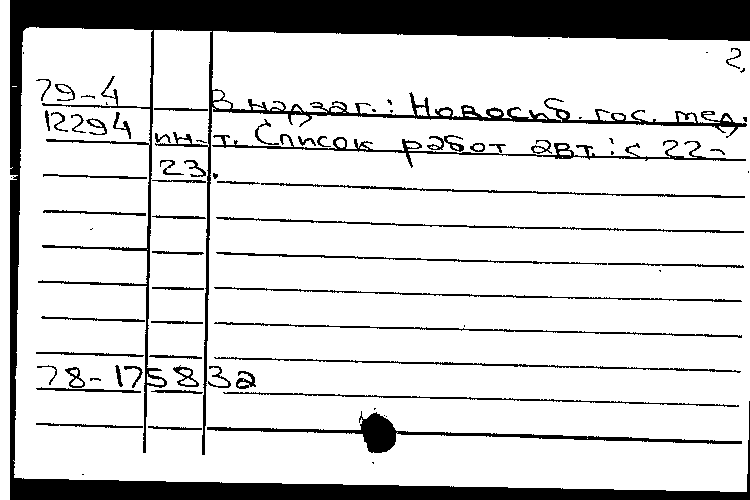 2,
79-4 В надзаг.: Новосиб. гос. мед.
12294 ин-т. Список работ авт.: с. 22-
23.
78-175832